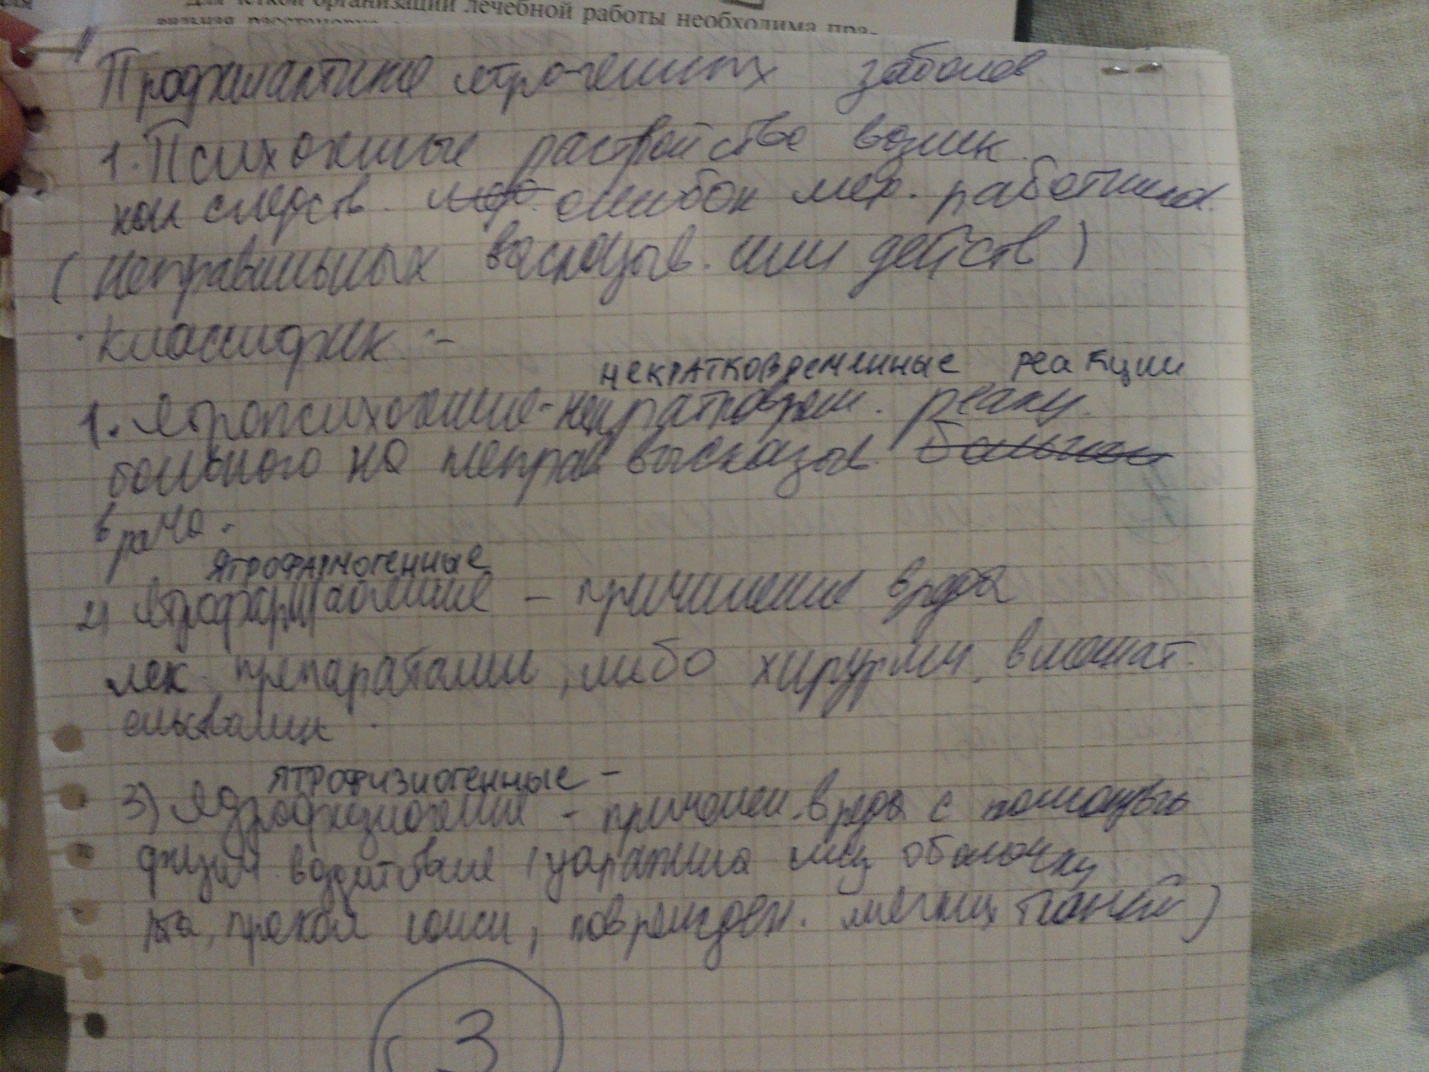 для четкой организации лечебной работы необходима пра-
Профилактика ятрогенных заболев
1. Психогенные растройства возник.
как следств. мед. ошибок мед. работника.
(неправильных высказыв. или действ)
Классифик:-
некратковременные реакции
1. Ятропсихогенные - некратковрем. реакц.
больного на неправ высказыв. больного
врача.
ятрофармогенные
2) Ятрофармаогенные - причинение вреда
лек. препаратами, либо хирургич. вмешат.
ельствами
ятрофизиогенные -
3) Ядрофизиогенные - причинен. вреда с помощью
физич. воздействие (царапина слиз оболочку
рта, прокол, поврежден. мягких тканей)
3